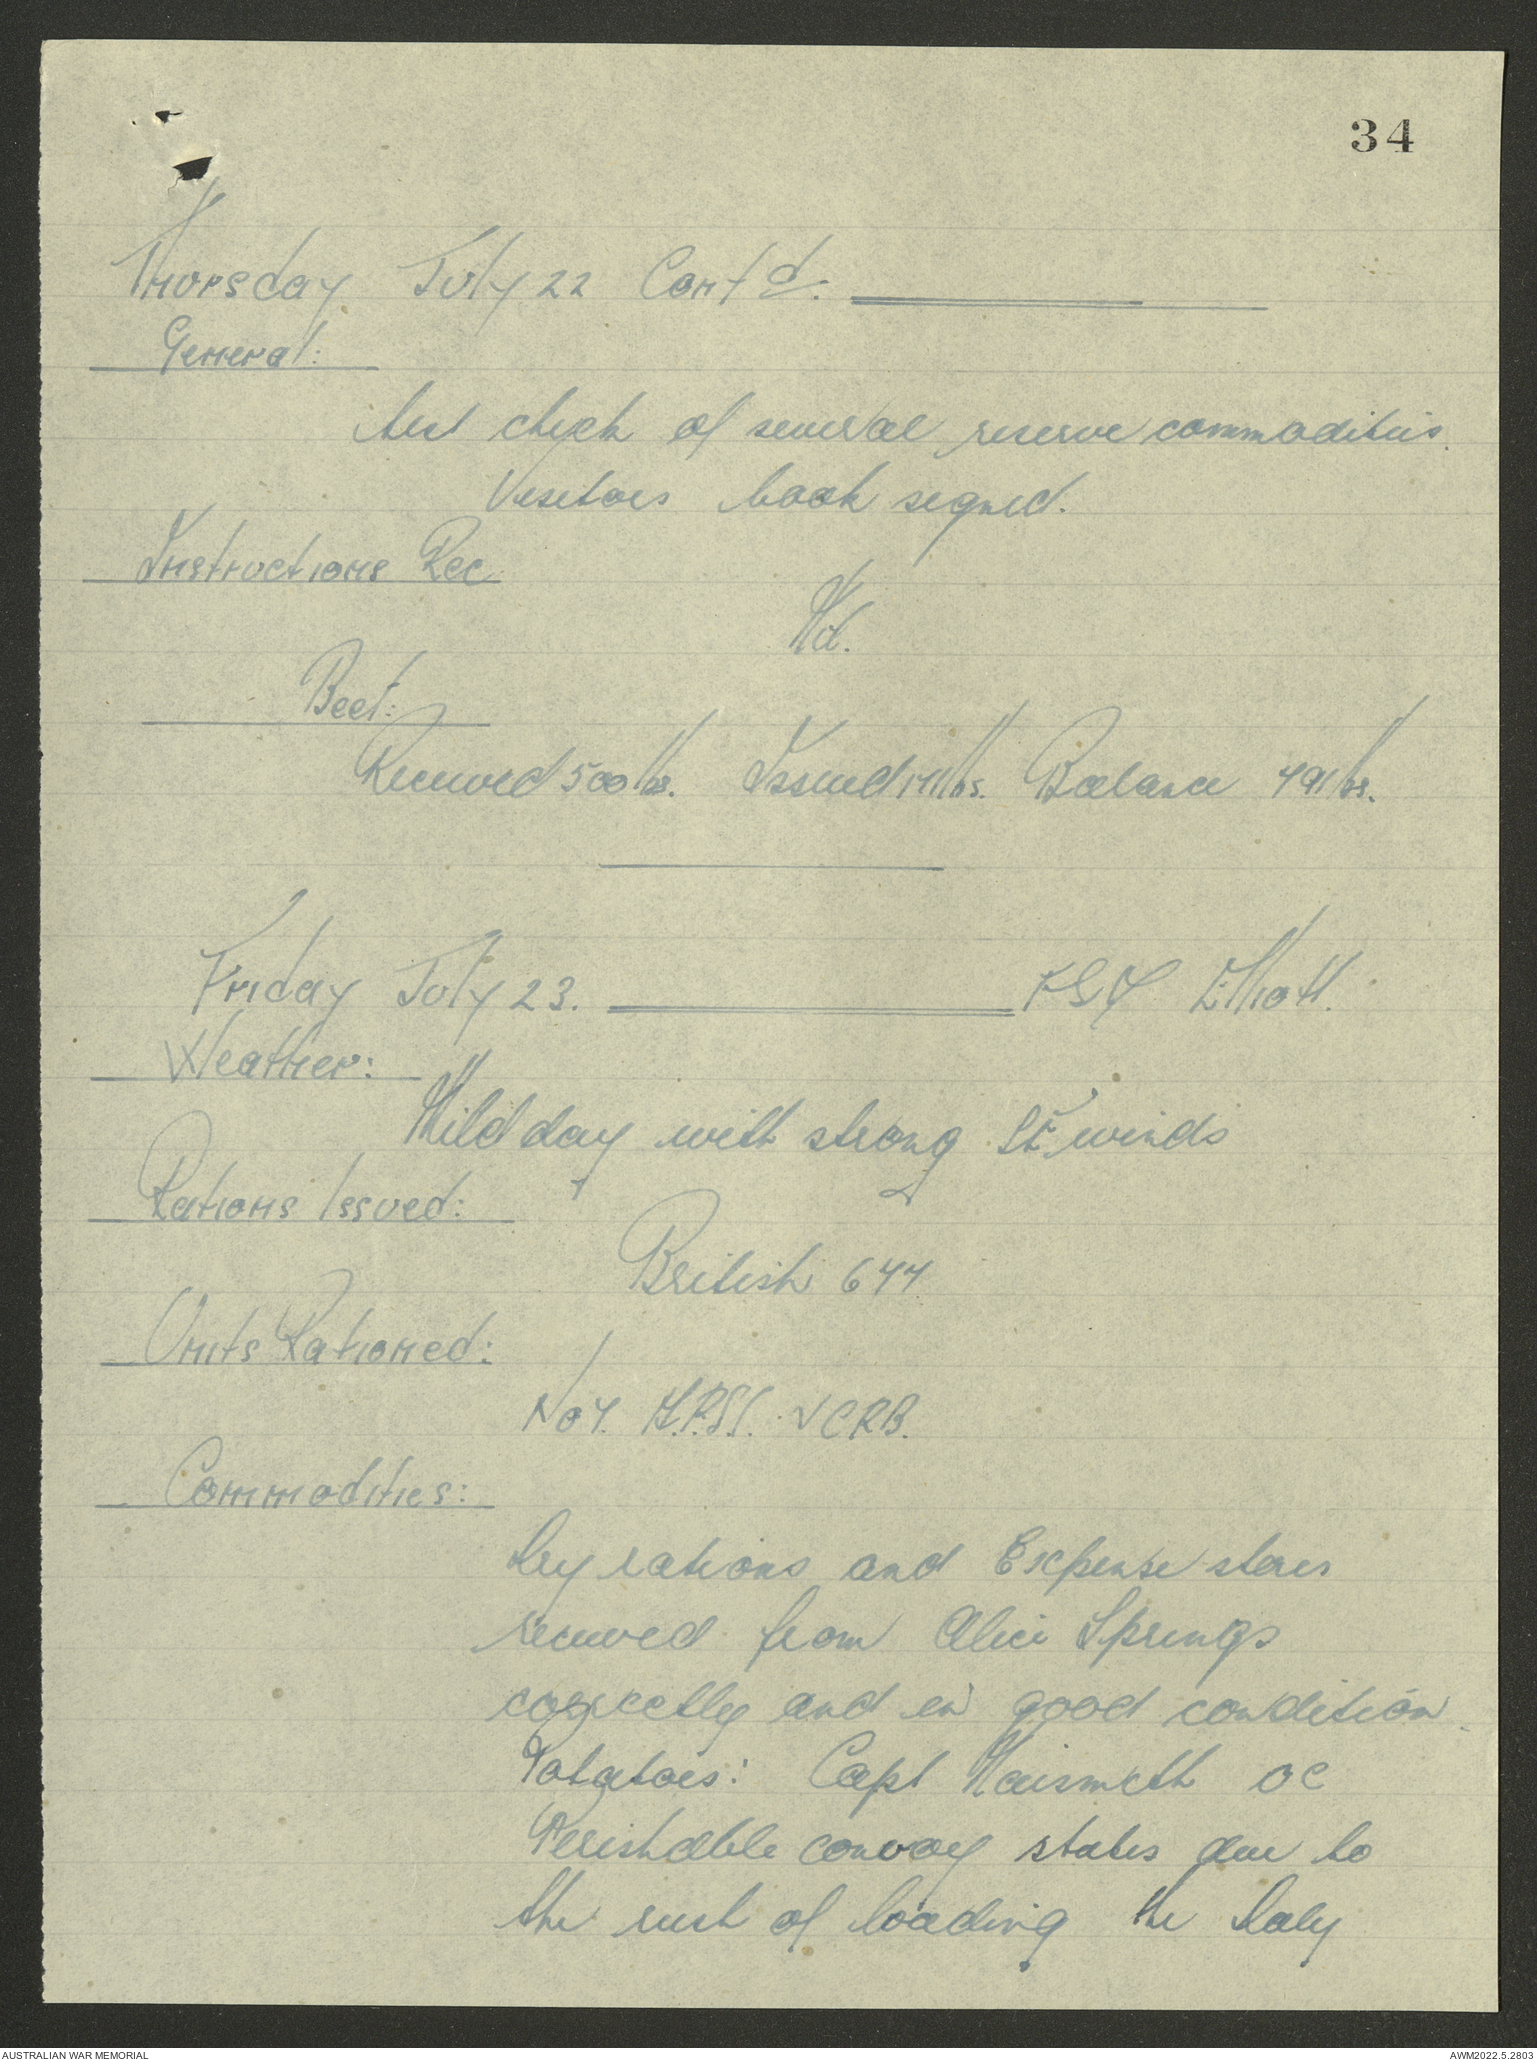 34
Thursday July 22 Cont'd:
General:
test check of several reserve commodities.
Visitors book signed.
Instructions Rec
Nil.
Beef:
Received 500 lbs. Issued lbs. Balance lbs.
Friday July 23. Elliott.
Weather:
Mild day with strong SE winds
Rations Issued:
British 677
Units Rationed:
No 7. VCRB.
Commodities:
Dry rations and Expense stores
received from Alice Springs
correctly and in good condition.
Potatoes: Capt Naismith OC
Perishable convoy states due to
the rush of loading the
AUSTRALIAN WAR MEMORIAL
AWM2022.5.2803